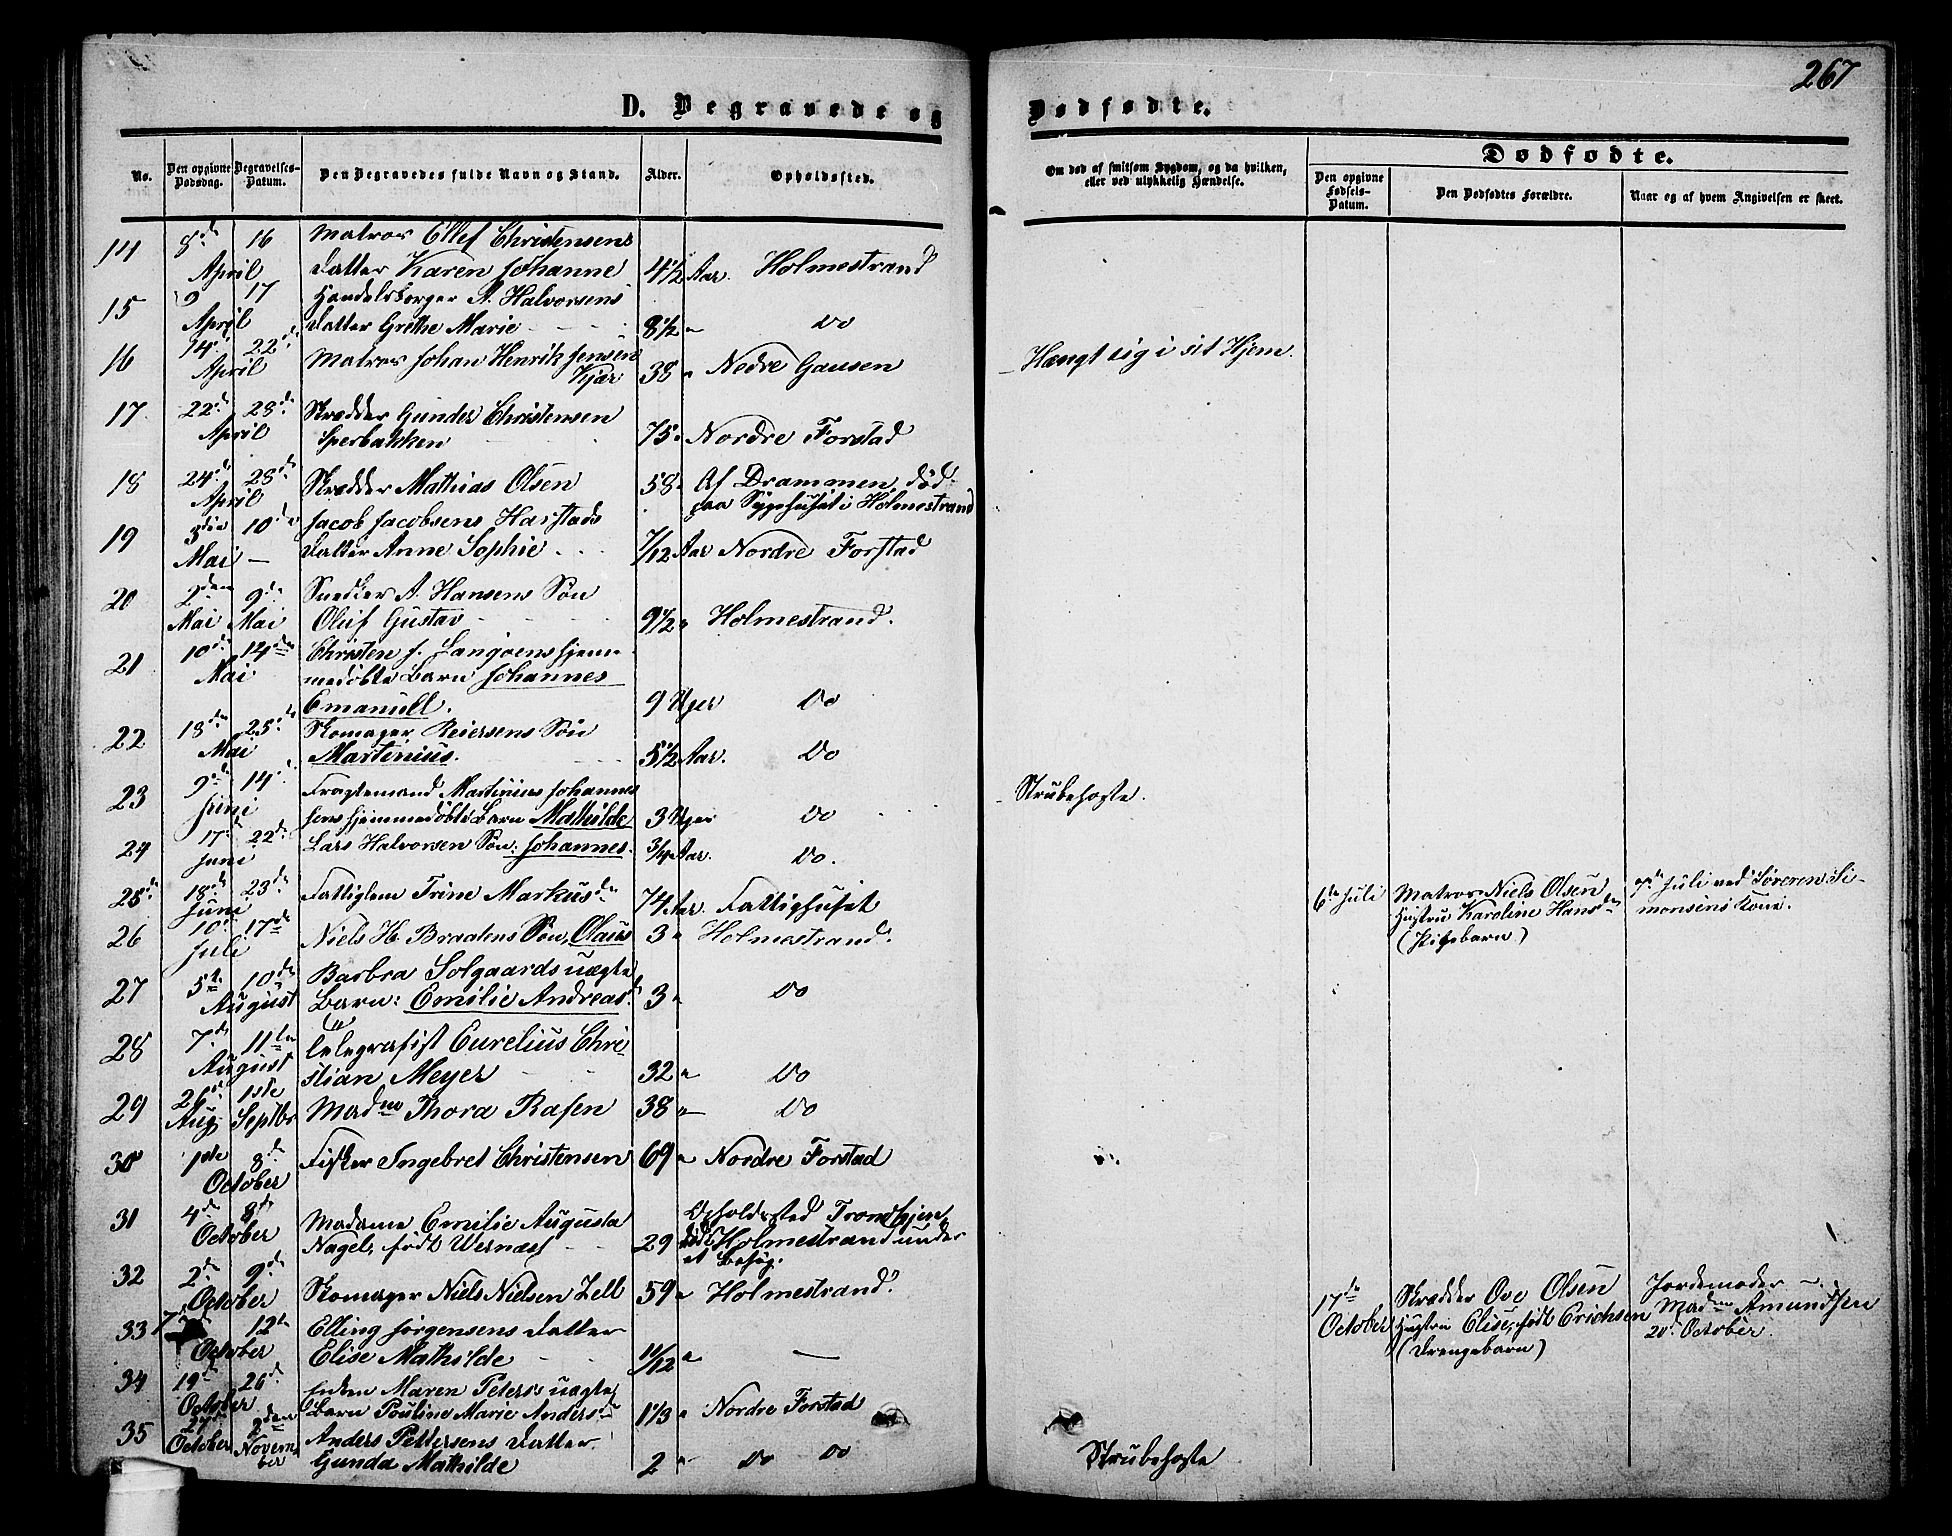 267
D. Begravede og Dødfødte.
No.
Den opgivne Dødsdag.
Begravelses-Datum.
Den Begravedes fulde Navn og Stand.
Alder.
Opholdssted.
Om død af smitsom Sygdom, og da hvilken, eller ved ulykkelig Hændelse.
Dødfødte.
Den opgivne Fødsels-Datum.
Den Dødfødtes Forældre.
Naar og af hvem Angivelsen er skeet.
14 8de 16 Matros Ellef Christensens
April Datter Karen Johanne 4 1/2 Aar. Holmestrand
15 9 17 Handelsborger A. Halvorsens
April Datter Grethe Marie 8 1/2 " Do
16 14de 22de Matros Johan Henrik Jensen
April Kjær 38 " Nedre Gausen Hængt sig i sit Hjem.
17. 22de 28de Skrædder Gunder Christensen
April Sperbakken 75 " Nordre Forstad
18 24de 28de Skrædder Mathias Olsen 58 " Af Drammen, død
April paa Sygehuset i Holmestrand
19 3die 10de Jacob Jacobsens Harstads
Mai — Datter Anne Sophie 7/12 Aar Nordre Forstad
20 2den 9de Snedker A. Hansens Søn
Mai Mai Oluf Gustav 9 1/2 " Holmestrand.
21 10de 14den Christen J. Langøens hjem-
Mai medøbte Barn Johannes
Emanuell. 9 Uger Do
22 18den 25de Skomager Reiersens Søn
Mai Martinius. 5 1/2 Aar. Do
23 9de 14de Fragtemand Martinius Johannes
Juni sens hjemmedøbte Barn Mathilde 3 Uger Do Strubehoste.
24 17de 22de Lars Halvorsen Søn: Johannes. 3/4 Aar. Do.
Juni
25de 18de 23de Fattiglem Trine Markusdn 74 Aar. Fattighuset
Juni
6te Juli Matros Niels Olsen
Hustru Karoline Hansdn
(Pigebarn)
7de Juli ved Søren Si-
monsens Kone.
26 10de 17de Niels H. Braatens Søn, Olaus 3 " Holmestrand.
Juli
27 5te 10de Barbra Solgaards uægte
August Barn: Emilie Andreasd. 3 " Do
28 7de 11te Telegrafist Eurelius Chri-
August stian Meyer 32 " Do
29 26de 1ste
Aug Septbr Madme Thora Rafen 38 " Do
30 1ste 8de Fisker Ingebret Christensen 69 " Nordre Forstad
October
31 4de 8de Madame Emilie Augusta Opholdssted Trondhjem,
October Nagel, født Wernæss 29 død i Holmestrand under
et Besøg.
32 2de 9de
October Skomager Niels Nielsen Zell 59 " Holmestrand.
17de
October
Skrædder Ove Olsen
Hustru Elise, født Erichsen
(Drengebarn)
Jordemoder
Madme Amundsen
20de October.
33 7 12te Elling Jørgensens Datter
October Elise Mathilde 11/12 " —
34 19de 26de Enken Maren Peters. uægte
October Barn Pouline Marie Andersd. 1 1/3 " Nordre Forstad
35 27de 2den Anders Pettersens Datter
October Novem-
ber Gunda Mathilde 2 " Do Do Strubehoste